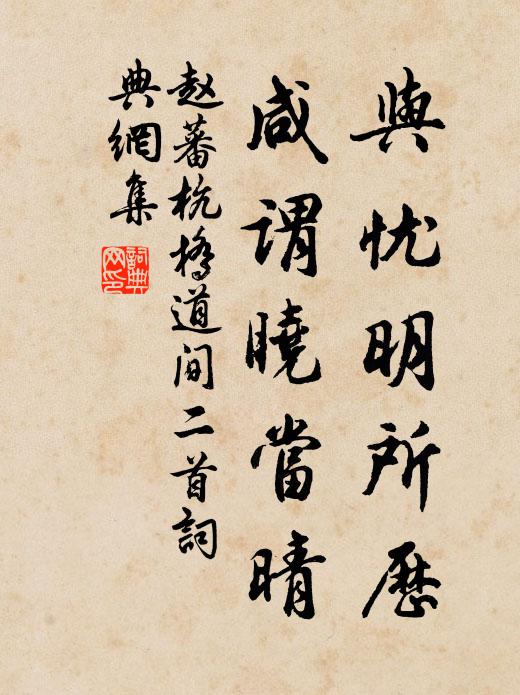 與忧明所歷
咸謂曉當晴
赵蕃杭橋道间二首詞
典網集
詞典
网印